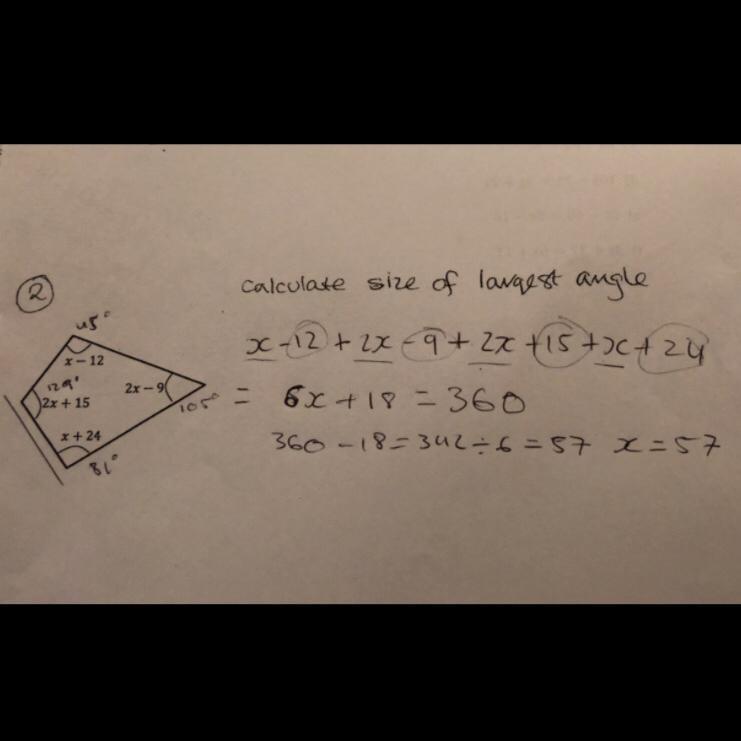 2
Calculate size of largest angle
45°
x − 12
129°
2x + 15
2x − 9
105°
x + 24
81°
x - 12 + 2x - 9 + 2x + 15 + x + 24
= 6x + 18 = 360
360 - 18 = 342 ÷ 6 = 57 x = 57